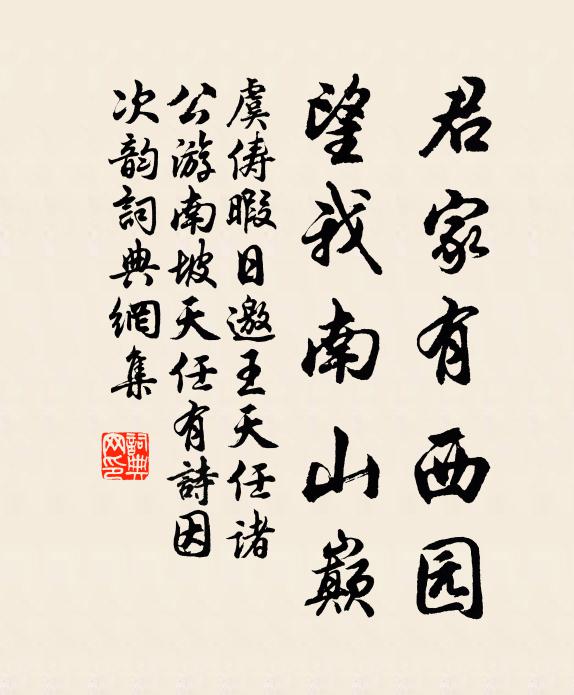 君家有西园
望我南山巔
虞儔暇日邀王天任诸
公游南坡天任有詩因
次韵詞典網集
詞典网印